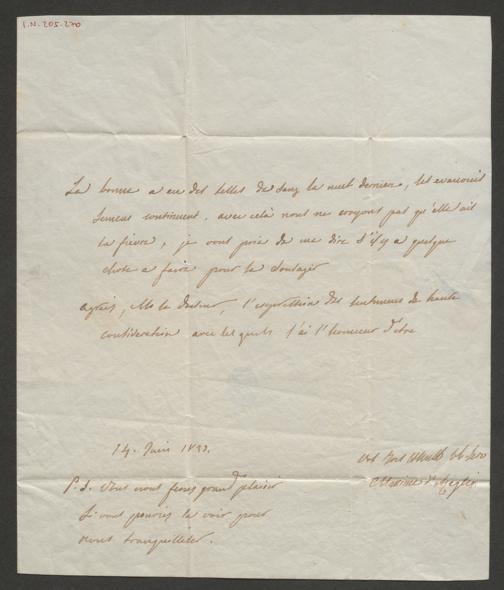 I.N. 205.270
La bonne a eu des selles de sang la nuit derniere, les evanouis
semens continuent. avec celà nous ne croyons pas qu'elle ait
la fievre, je vous prie de me dire s'il y a quelque
chose a faire pour la soulager
agréés, Mr le docteur, l'expression des sentimens de haute
consideration avec lesquels j'ai l'honneur d'etre
14. Juin
P.S. Vous nous feriés grand plaisir
si vous pouviés la voir pour
nous tranquilliser.